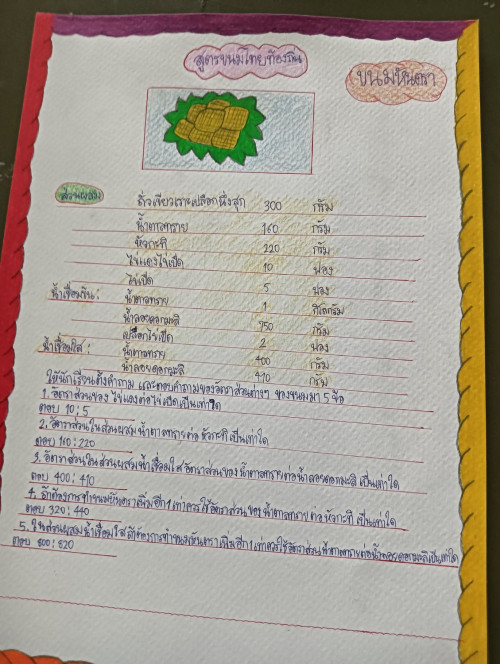 สูตรขนมไทยท้องถิ่น
ขนมหันตรา
ส่วนผสม
ถั่วเขียวเราะเปลือกนึ่งสุก 300 กรัม
น้ำตาลทราย 160 กรัม
หัวกะทิ 220 กรัม
ไข่แดงไข่เป็ด 10 ฟอง
ไข่เป็ด 5 ฟอง
น้ำเชื่อมข้น : น้ำตาลทราย 1 กิโลกรัม
น้ำลอยดอกมะลิ 950 กรัม
เปลือกไข่เป็ด 2 ฟอง
น้ำเชื่อมใส : น้ำตาลทราย 400 กรัม
น้ำลอยดอกมะลิ 410 กรัม
ให้นักเรียนตั้งคำถาม และตอบคำถามของอัตราส่วนต่างๆ ของขนมมา 5 ข้อ
1. อัตราส่วนของ ไข่แดงต่อไข่เป็ดเป็นเท่าใด
ตอบ 10 : 5
2. อัตราส่วนในส่วนผสมน้ำตาลทรายต่อ หัวกะทิเป็นเท่าใด
ตอบ 160 : 220
3. อัตราส่วนในส่วนผสมน้ำเชื่อมใส อัตราส่วนของน้ำตาลทรายต่อน้ำลอยดอกมะลิ เป็นเท่าใด
ตอบ 400 : 410
4. ถ้าต้องการทำขนมหันตราเพิ่มอีก 1 เท่าควรใช้อัตราส่วนของน้ำตาลทราย ต่อ หัวกะทิ เป็นเท่าใด
ตอบ 320 : 440
5. ในส่วนผสมน้ำเชื่อมใส ถ้าต้องการทำขนมหันตราเพิ่มอีก 1 เท่าควรใช้อัตราส่วนน้ำตาลทรายต่อน้ำลอยดอกมะลิเป็นเท่าใด
ตอบ 800 : 820